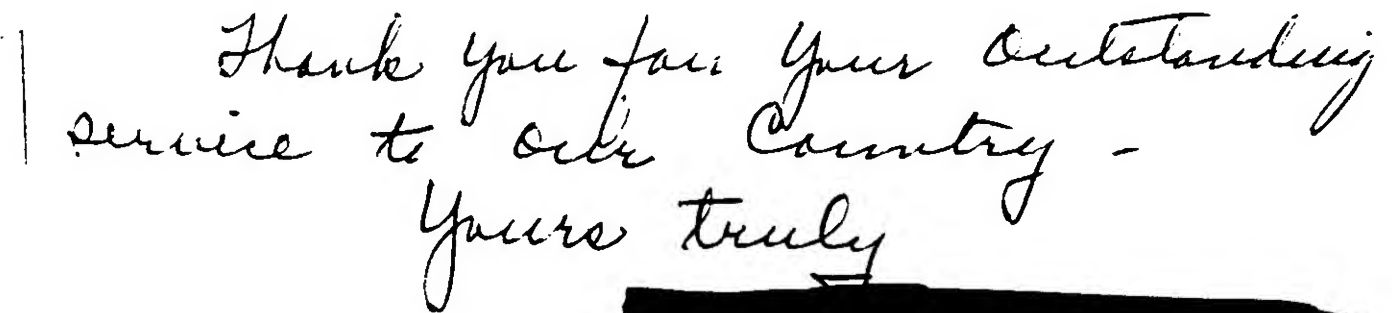 Thank you for your Outstanding
service to our Country -
Yours truly